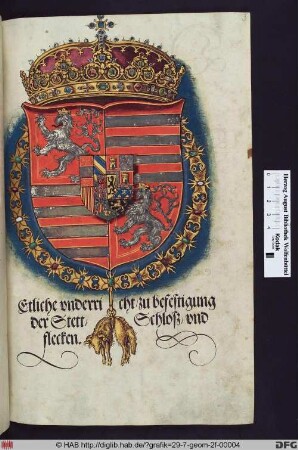 3
Etliche vnderri cht zu befestigung
der Stett/ Schloß/ vnd
flecken.
Herzog August Bibliothek Wolfenbüttel
Kodak
© HAB http://diglib.hab.de/?grafik=29-7-geom-2f-00004
DFG